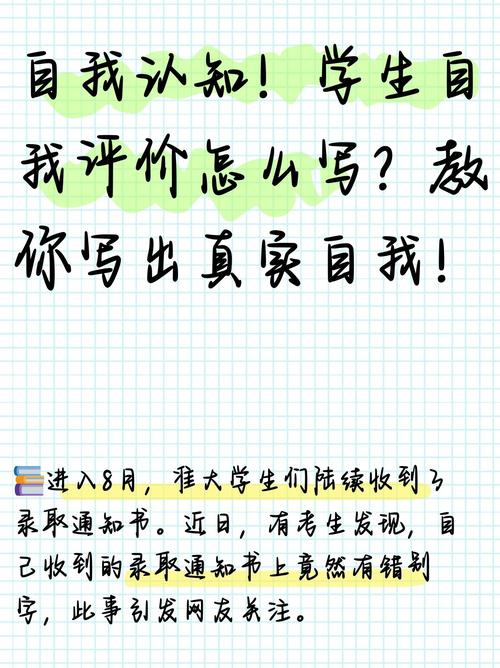 自我认知！学生自
我评价怎么写？教
你写出真实自我！
📚进入8月，准大学生们陆续收到了
录取通知书。近日，有考生发现，自
己收到的录取通知书上竟然有错别
字，此事引发网友关注。